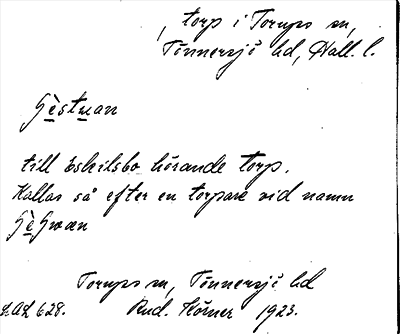 , torp i Torups sn,
Tönnersjö hd, Hall. l.
Gèstman
till Eskilsbo hörande torp.
Kallas så efter en torpare vid namn
Torups sn, Tönnersjö hd
628. Rud. Hörner 1923.